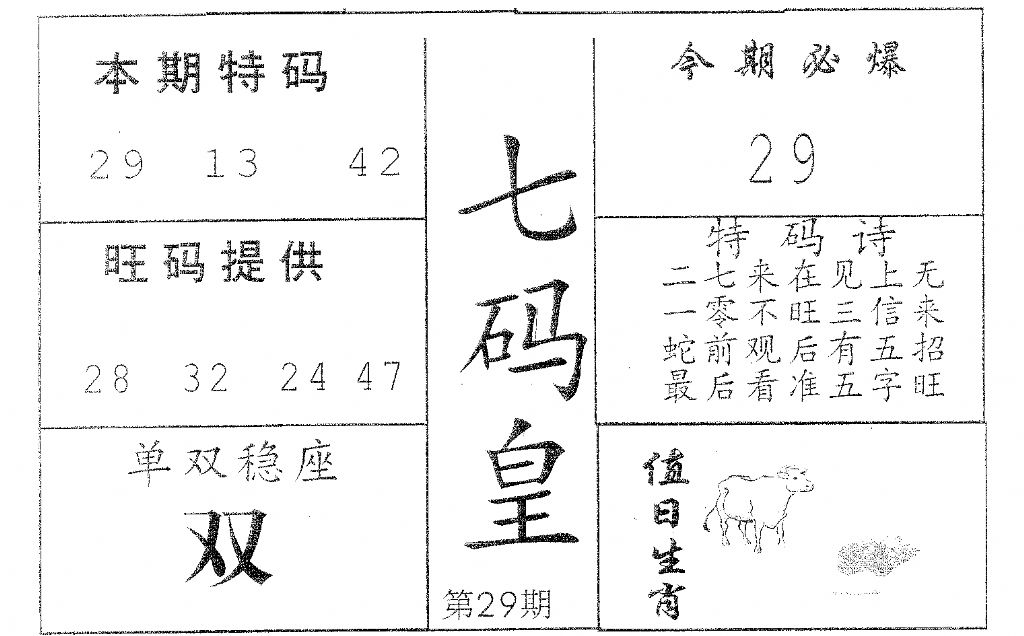 本期特码
29 13 42
旺码提供
28 32 24 47
单双稳座
双
七码皇
第29期
今期必爆
29
特码诗
二七来在见上无
一零不旺三信来
蛇前观后有五招
最后看准五字旺
值日生肖